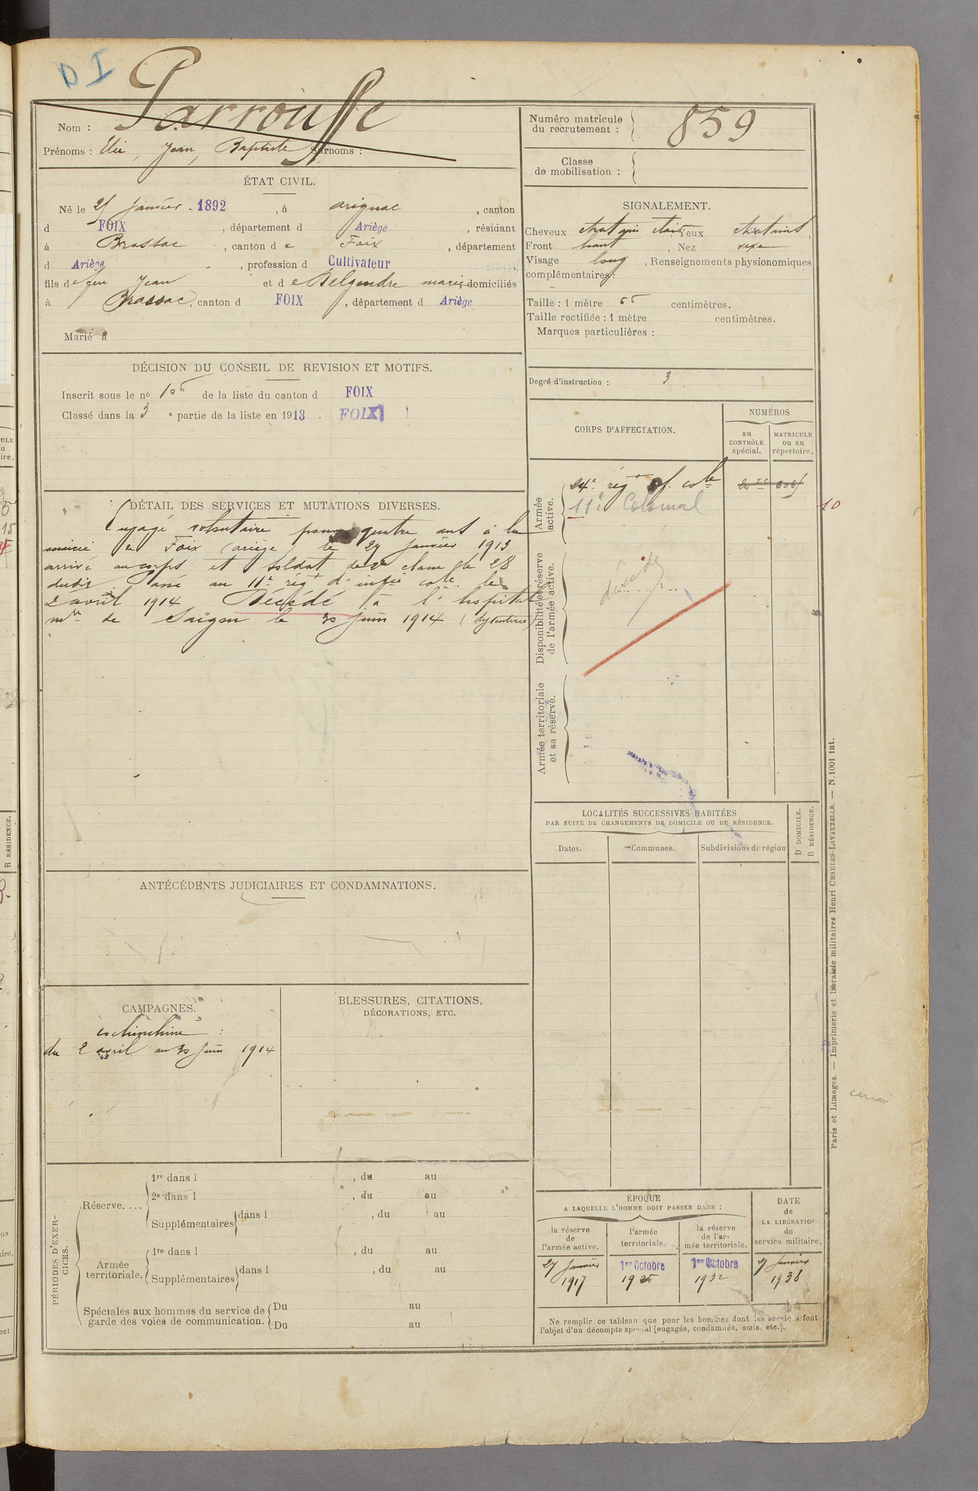 D I
Parrouffe
Nom :
Prénoms : Elie, Jean, Baptiste Surnoms :
Numéro matricule du recrutement : 859
Classe de mobilisation :
ÉTAT CIVIL.
Né le 27 Janvier 1892, à Arignac, canton
d FOIX, département d Ariège, résidant
à Brassac, canton de Foix, département
d Ariège, profession d Cultivateur
fils de feu Jean et de marie domiciliés
à Brassac, canton d FOIX, département d Ariège
Marié à
SIGNALEMENT.
Cheveux chatain clair Yeux chatains
Front haut, Nez
Visage long, Renseignements physionomiques
complémentaires :
Taille : 1 mètre 66 centimètres.
Taille rectifiée : 1 mètre centimètres.
Marques particulières :
Degré d'instruction : 3
DÉCISION DU CONSEIL DE REVISION ET MOTIFS.
Inscrit sous le no de la liste du canton d FOIX
Classé dans la 3e partie de la liste en 1913 FOIX
CORPS D'AFFECTATION.
NUMÉROS
au CONTRÔLE spécial.
MATRICULE ou au répertoire.
Armée active.
24e rég inf. cole
11e Colonial
10
Disponibilité et réserve de l'armée active.
décédé
Armée territoriale et sa réserve.
DÉTAIL DES SERVICES ET MUTATIONS DIVERSES.
Engagé volontaire pour quatre ans à la
mairie de Foix (ariège) le 27 Janvier 1913
arrivé au corps et soldat de 2e classe le 28
dudit. Passé au 11e régt d'infie cole le
2 avril 1914 Décédé à l'hopital
mre de Saïgon le 30 Juin 1914 (dysenterie)
LOCALITÉS SUCCESSIVES HABITÉES
PAR SUITE DE CHANGEMENTS DE DOMICILE OU DE RÉSIDENCE.
Dates.
Communes.
Subdivisions de région
D DOMICILE.
R RÉSIDENCE.
ANTÉCÉDENTS JUDICIAIRES ET CONDAMNATIONS.
CAMPAGNES.
cochinchine :
du 2 avril au 30 Juin 1914
BLESSURES, CITATIONS,
DÉCORATIONS, ETC.
PÉRIODES D'EXERCICES.
Réserve....
1re dans l , du au
2e dans l , du au
Supplémentaires dans l , du au
Armée territoriale.
1re dans l , du au
Supplémentaires dans l , du au
Spéciales aux hommes du service de garde des voies de communication.
Du au
Du au
ÉPOQUE
A LAQUELLE L'HOMME DOIT PASSER DANS :
la réserve de l'armée active.
l'armée territoriale.
la réserve de l'armée territoriale.
DATE de LA LIBÉRATION du service militaire.
27 Janvier 1917
1er Octobre 1926
1er Octobre 1932
27 Janvier 1938
Ne remplir ce tableau que pour les hommes dont les services font
l'objet d'un décompte spécial (engagés, condamnés, omis, etc.).
Paris et Limoges. — Imprimerie et librairie militaires Henri CHARLES-LAVAUZELLE. — N. 1001 int.